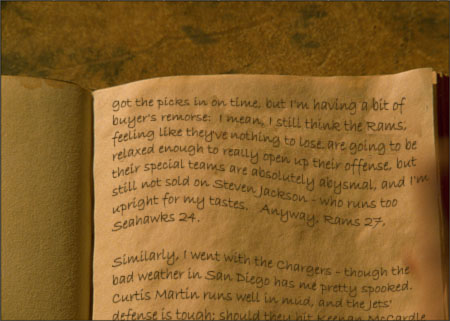 got the picks in on time, but I'm having a bit of
buyer's remorse: I mean, I still think the Rams,
feeling like they've nothing to lose, are going to be
relaxed enough to really open up their offense, but
their special teams are absolutely abysmal, and I'm
still not sold on Steven Jackson - who runs too
upright for my tastes. Anyway, Rams 27,
Seahawks 24.
Similarly, I went with the Chargers - though the
bad weather in San Diego has me pretty spooked.
Curtis Martin runs well in mud, and the Jets'
defense is tough; should they hit Keenan McCardle